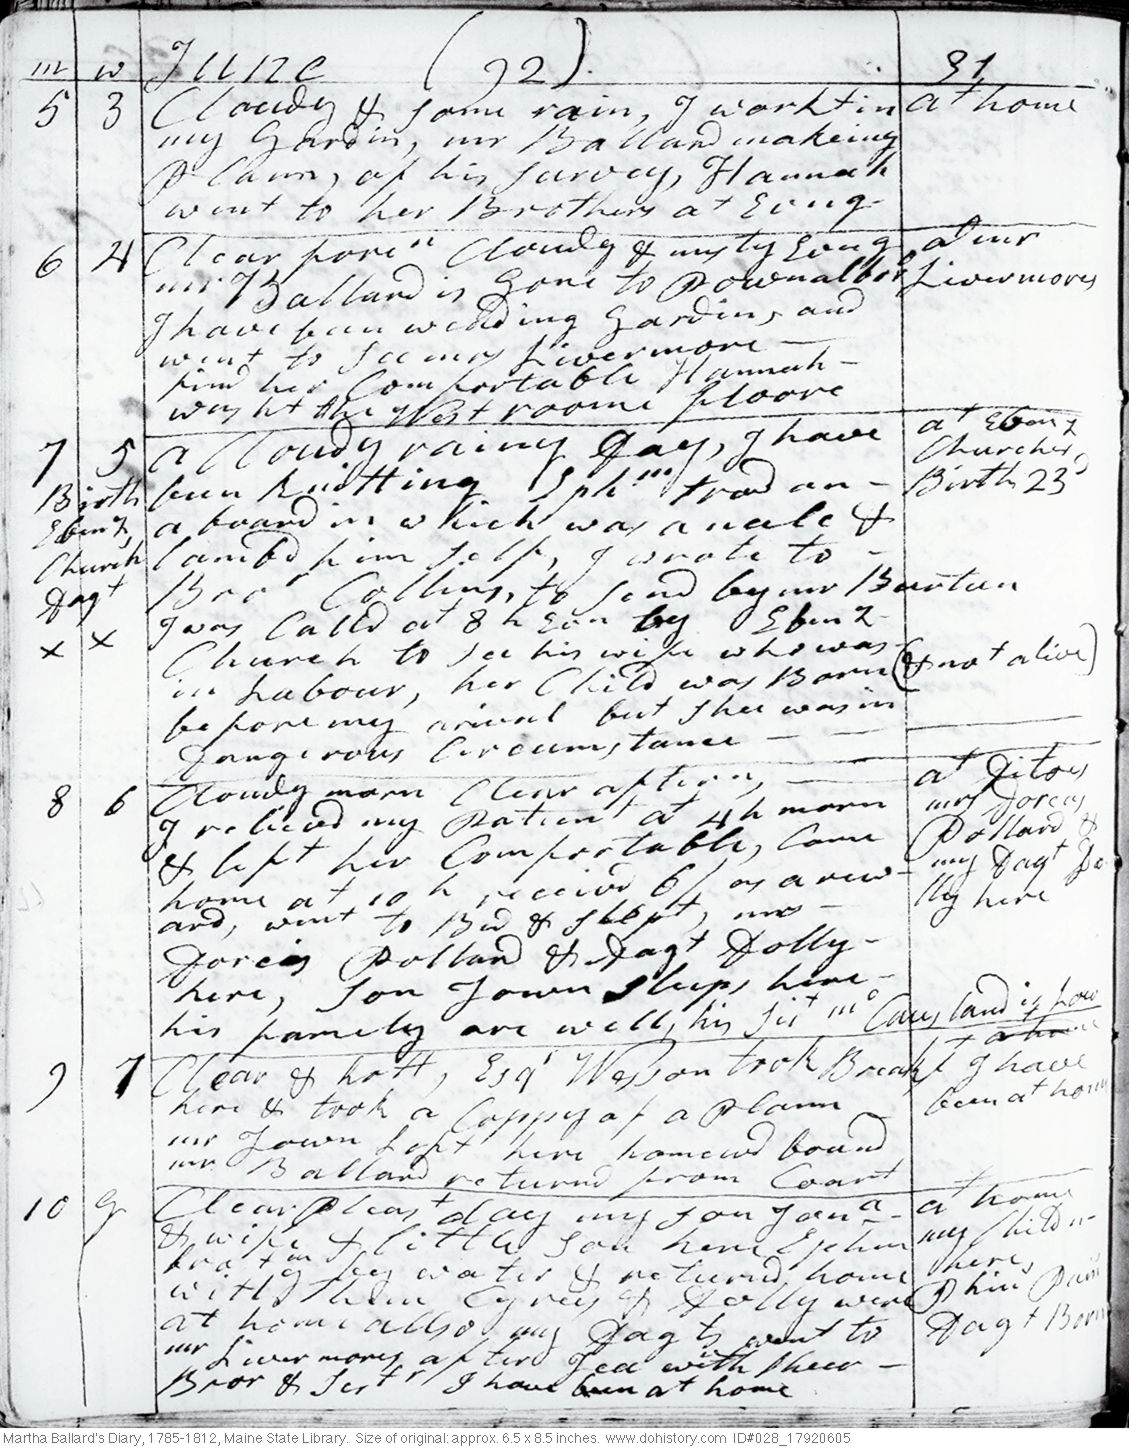 m w June (92). 91
5 3 Cloudy & some rain, I workt in at home
my Gardin, mr Ballard makeing
Plann, of his survey, Hannah
went to her Brothers at Evng.
6 4 Clear foren Cloudy & misty Evng at mr
mr Ballard is Gone to Pownalboro Livermores
I have been weeding Gardin, and
went to see mrs Livermore
find her Comfortable Hannah
washt the West roome floore
7 5 a Cloudy rainy Day, I have at Ebenz
Churches
Birth been knitting Ephm trod an Birth 23d
Ebenz a board in which was a nale &
Church lambd him self, I wrote to
Dagt Bror Collins, to send by mr Burtun
x x I was Calld at 8 h Evn by Ebenz
Church to see his wife who was
in Labour, her Child was Born (& not alive)
before my arival but shee was in
Dangerous Circumstance
8 6 Cloudy morn Clear aftern, at Ditoes
I relievd my Patient at 4 h morn mrs Dorcas
& left her Comfortable, Came Pollard &
home at 10 h receivd 6/ as a rew my Dagt Do
ard, went to Bed & slept, mrs lly here
Dorcas Pollard & Dagt Dolly
here, son Town sleeps here
his family are well, his sist mc Causland is
9 7 Clear & hott, Esqr Wesson took Breakft I have
here & took a Coppy of a Plann been at home
mr Town left here homewd bound
mr Ballard returnd from Court
10 g Clear Pleast day my son Jona at home
& wife & little son here Ephm my Childn
brat my water & returnd home here
with them Cyrus & Dolly were Phins Pain
at home allso, my Dagts went to Dagt Born
mr Livermores after Tea with theer
Bror & Sistr I have been at home
Martha Ballard's Diary, 1785-1812, Maine State Library. Size of original: approx. 6.5 x 8.5 inches. www.dohistory.com ID#028_17920605